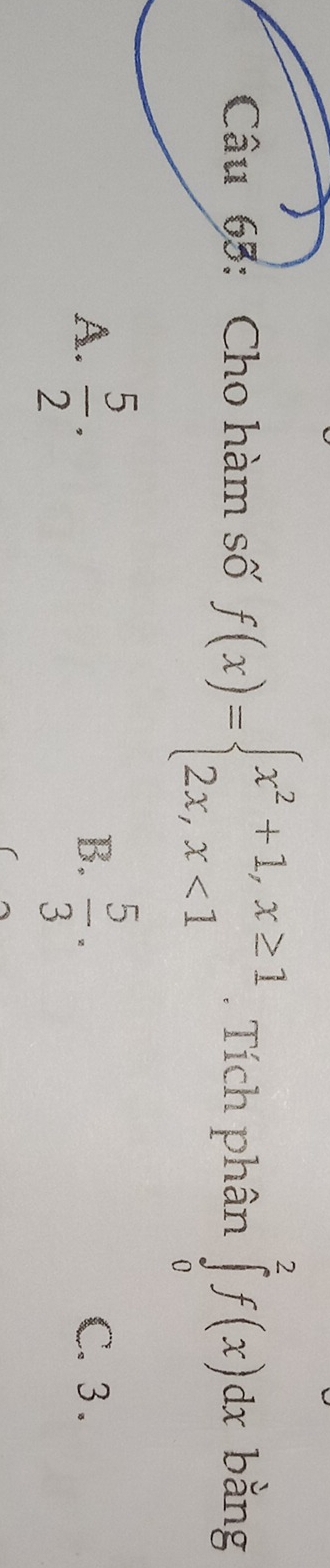 Câu 65: Cho hàm số f(x) = { x² + 1, x ≥ 1
2x, x < 1 . Tích phân ∫₀² f(x)dx bằng
A. 5/2 . B. 5/3 . C. 3 .